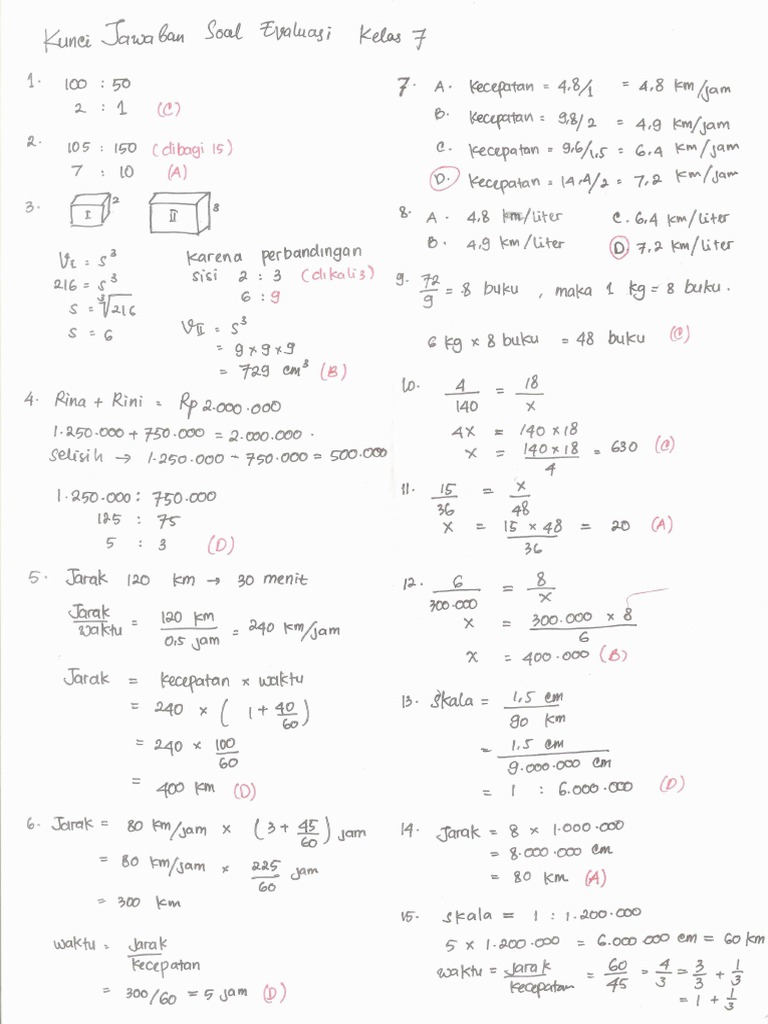 Kunci Jawaban Soal Evaluasi Kelas 7
1. 100 : 50
2 : 1 (C)
2. 105 : 150 (dibagi 15)
7 : 10 (A)
3. I 2 II 8
VI = s³
216 = s³
s = ³√216
s = 6
karena perbandingan
sisi 2 : 3 (dikali 3)
6 : 9
VII = s³
= 9 x 9 x 9
= 729 cm³ (B)
4. Rina + Rini = Rp 2.000.000
1.250.000 + 750.000 = 2.000.000.
Selisih → 1.250.000 - 750.000 = 500.000
1.250.000 : 750.000
125 : 75
5 : 3 (D)
5. Jarak 120 km → 30 menit
Jarak/waktu = 120 km/0,5 jam = 240 km/jam
Jarak = kecepatan x waktu
= 240 x (1 + 40/60)
= 240 x 100/60
= 400 km (D)
6. Jarak = 80 km/jam x (3 + 45/60) jam
= 80 km/jam x 225/60 jam
= 300 km
waktu = Jarak/kecepatan
= 300/60 = 5 jam (D)
7. A. kecepatan = 4,8/1 = 4,8 km/jam
B. kecepatan = 9,8/2 = 4,9 km/jam
C. kecepatan = 9,6/1,5 = 6,4 km/jam
D. kecepatan = 14,4/2 = 7,2 km/jam
8. A. 4,8 km/liter C. 6,4 km/liter
B. 4,9 km/liter D. 7,2 km/liter
9. 72/9 = 8 buku , maka 1 kg = 8 buku.
6 kg x 8 buku = 48 buku (C)
10. 4/140 = 18/x
4x = 140 x 18
x = 140 x 18/4 = 630 (C)
11. 15/36 = x/48
x = 15 x 48/36 = 20 (A)
12. 6/300.000 = 8/x
x = 300.000 x 8/6
x = 400.000 (B)
13. Skala = 1,5 cm/90 km
= 1,5 cm/9.000.000 cm
= 1 : 6.000.000 (D)
14. Jarak = 8 x 1.000.000
= 8.000.000 cm
= 80 km (A)
15. skala = 1 : 1.200.000
5 x 1.200.000 = 6.000.000 cm = 60 km
waktu = Jarak/kecepatan = 60/45 = 4/3 = 3/3 + 1/3
= 1 + 1/3